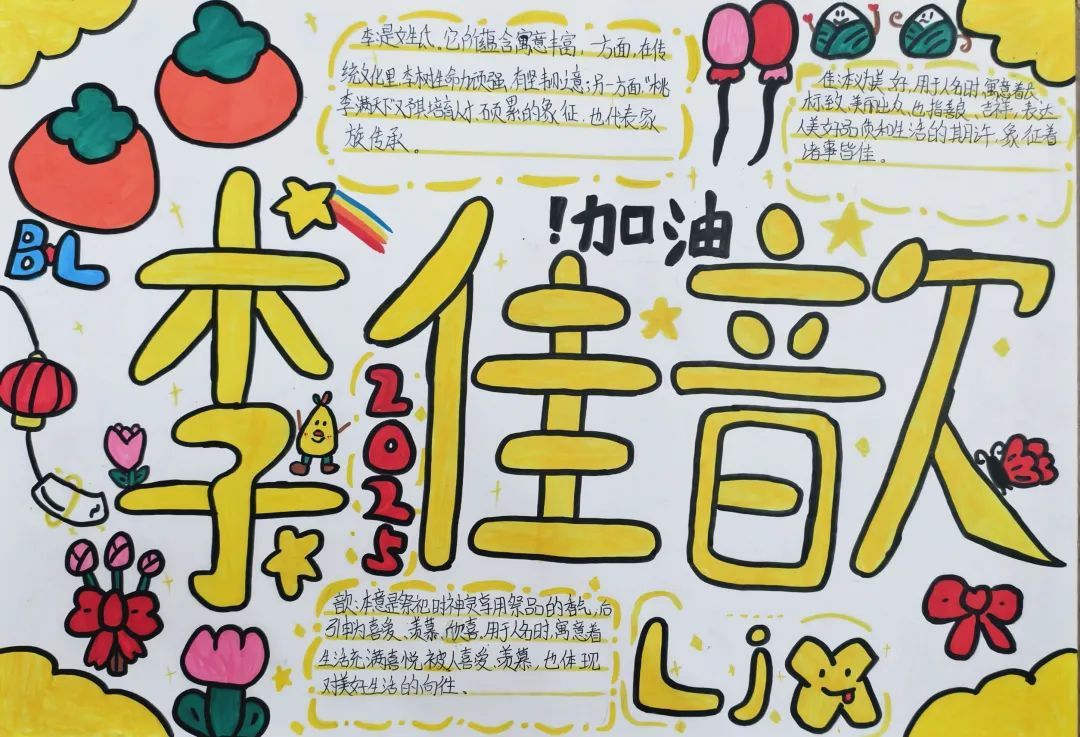 李:是文生氏。它的蕴含寓意丰富,一方面,在传
统文化里,李树生命力顽强,有坚韧之意;另一方面,"桃
李满天下"又与培育人才、硕果的象征,也代表家
族传承。
佳:本义美、好,用于人名时,寓意着
标致、美丽出众,也指善良、吉祥,表达
人美好品质和生活的期许,象征着
诸事皆佳。
!加油
B L
李佳歆
2025
歆:本意是祭祀时神灵享用祭品的香气,后
引申为喜爱、羡慕、欣喜,用于人名时,寓意着
生活充满喜悦,被人喜爱、羡慕,也体现
对美好生活的向往。
Ljx